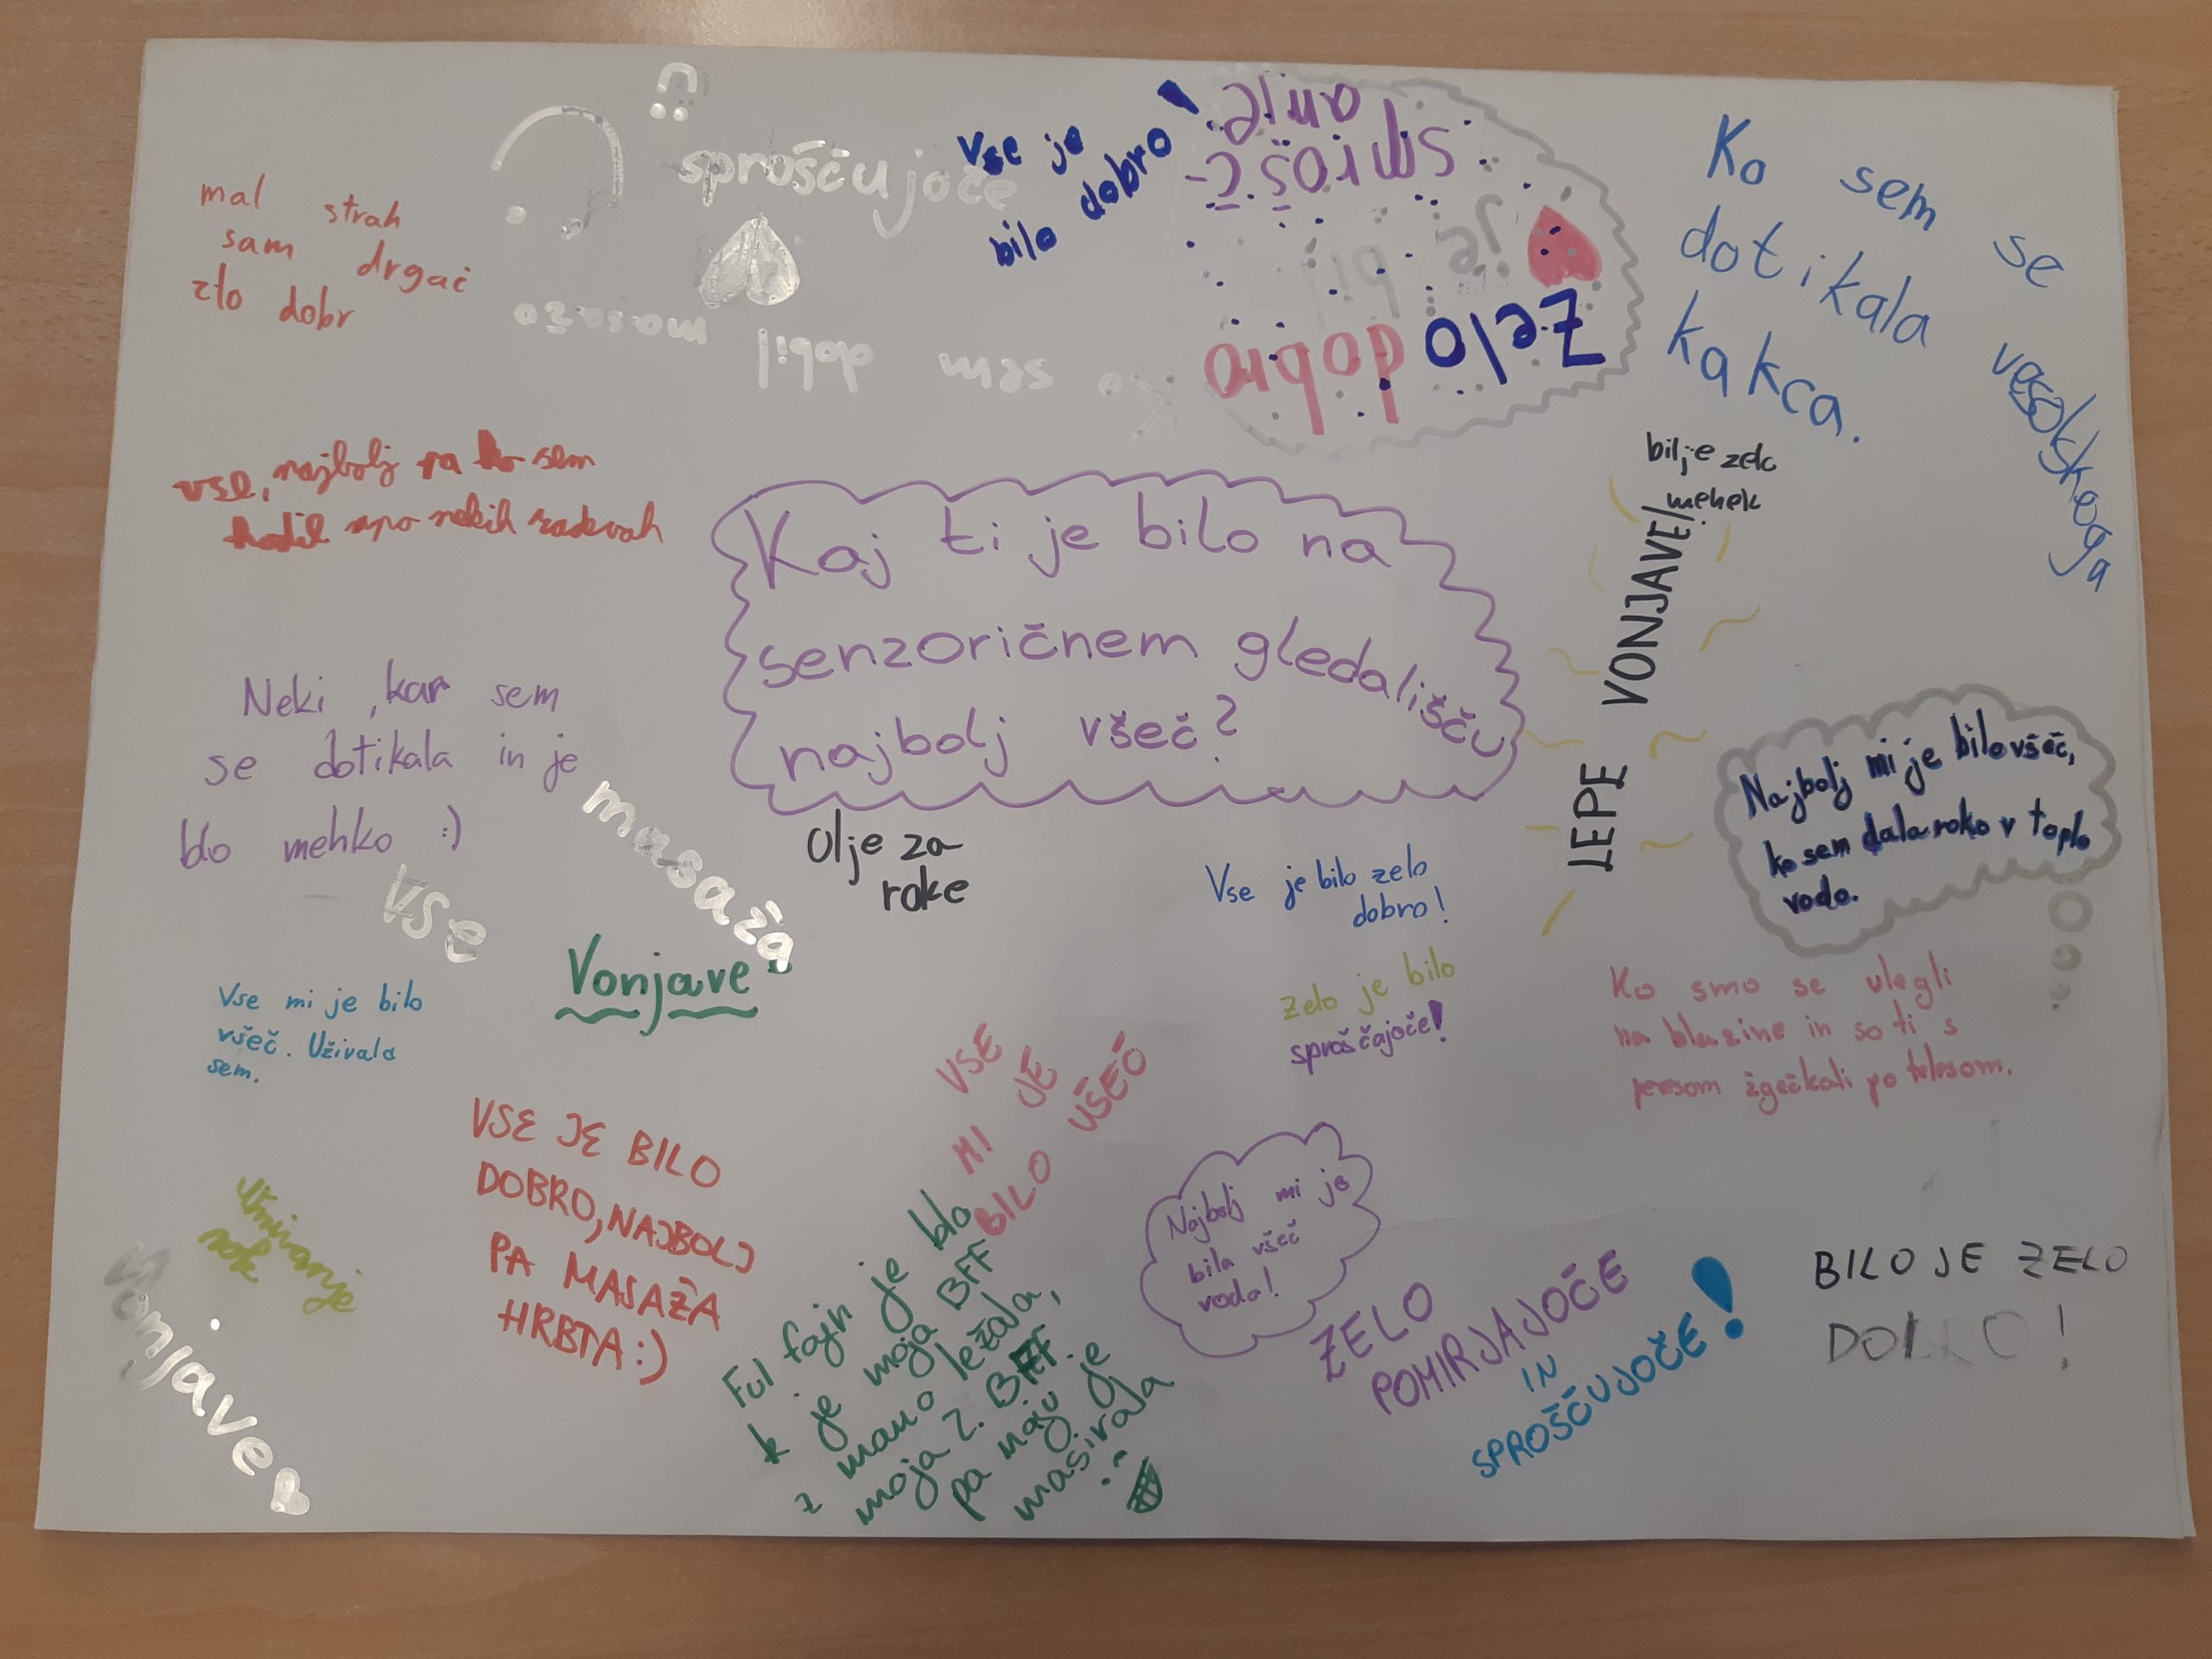 Kaj ti je bilo na
senzoričnem gledališču
najbolj všeč?
mal strah
sam drgač
zlo dobr
sproščujoče
Ko sem dobil masažo
vse je
bilo dobro!
Zelo dobro
je bi
Ko sem se vesoljskega
dotikala
kakca.
vse, najbolj pa ko sem
hodil
bil je zelo
mehek
LEPE VONJAVE!
Neki, kar sem
se dotikala in je
blo mehko :)
masaža
vse
Olje za
roke
Najbolj mi je bilo všeč,
ko sem dala roko v toplo
vodo.
Vse je bilo zelo
dobro!
Vonjave
Vse mi je bilo
všeč. Uživala
sem.
Zelo je bilo
sproščajoče!
Ko smo se ulegli
na blazine in so ti s
peresom žgečkali po telesom.
VSE
MI JE
BILO UŠEČ
VSE JE BILO
DOBRO, NAJBOLJ
PA MASAŽA
HRBTA :)
Umivanje
rok
Vonjave
Ful fajn je blo
k je moja BFF
z mano ležala,
moja 2. BFF
pa naju je
masirala
Najbolj mi je
bila všeč
voda!
ZELO
POMIRJAJOČE
IN
SPROŠČUJOČE!
BILO JE ZELO
DOBRO!